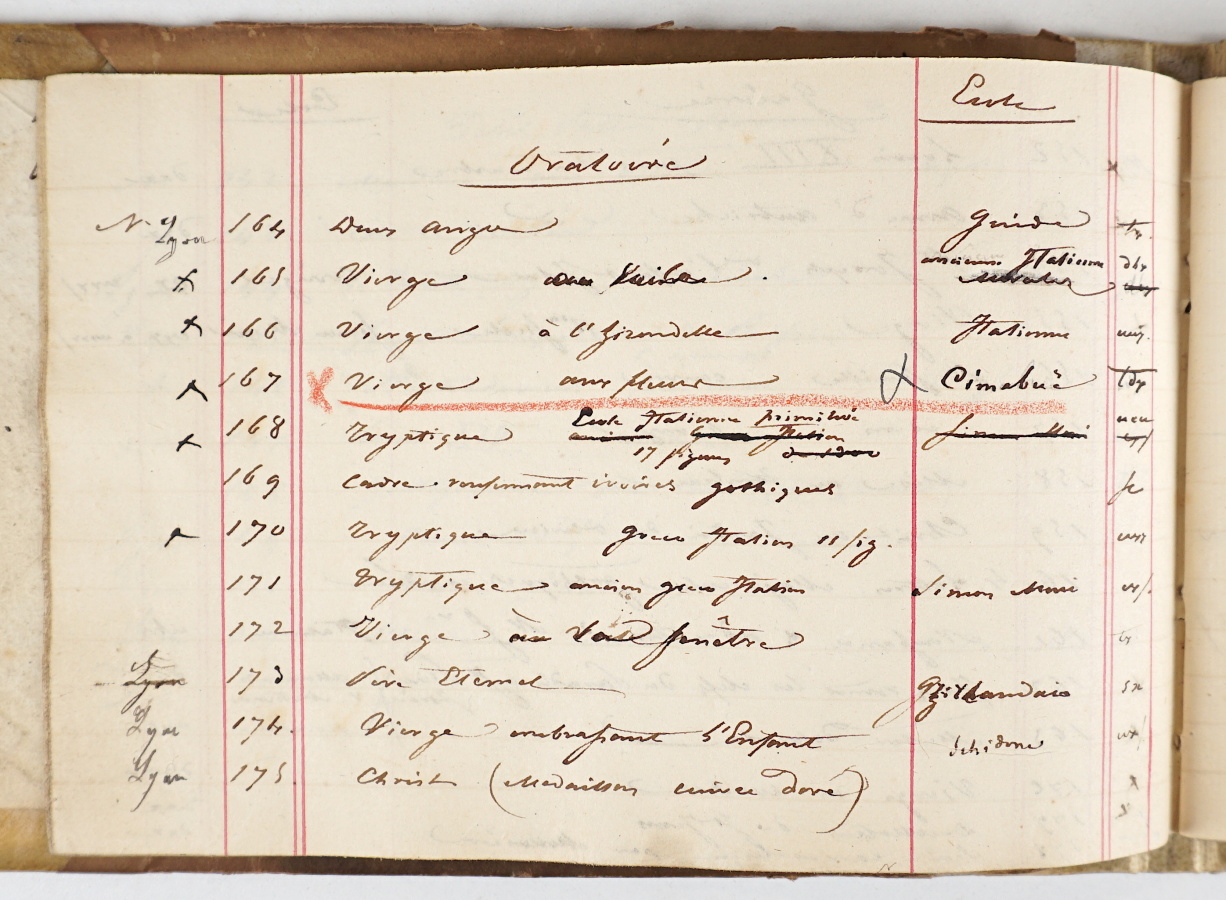 Ecole
Oratoire
N. Lyon 164 Deux anges Guide
165 Vierge au Voile. ancienne Italienne
166 Vierge à l'Girondelle Italienne
167 Vierge aux fleurs Cimabuë
168 Tryptique Ecole Italienne primitive
17 figures
169 Cadre renfermant ivoires gothiques
170 Tryptique Greco Italien 11 fig.
171 Tryptique ancien greco Italien Simon Memi
172 Vierge à la fenêtre
Lyon 173 Père Eternel Ghirlandaio
Lyon 174. Vierge embrassant l'Enfant Schidone
Lyon 175. Christ (Medaillon cuivre doré)